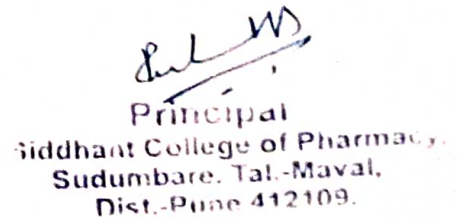 Principal
Siddhant College of Pharmacy,
Sudumbare. Tal.-Maval,
Dist.-Pune 412109.